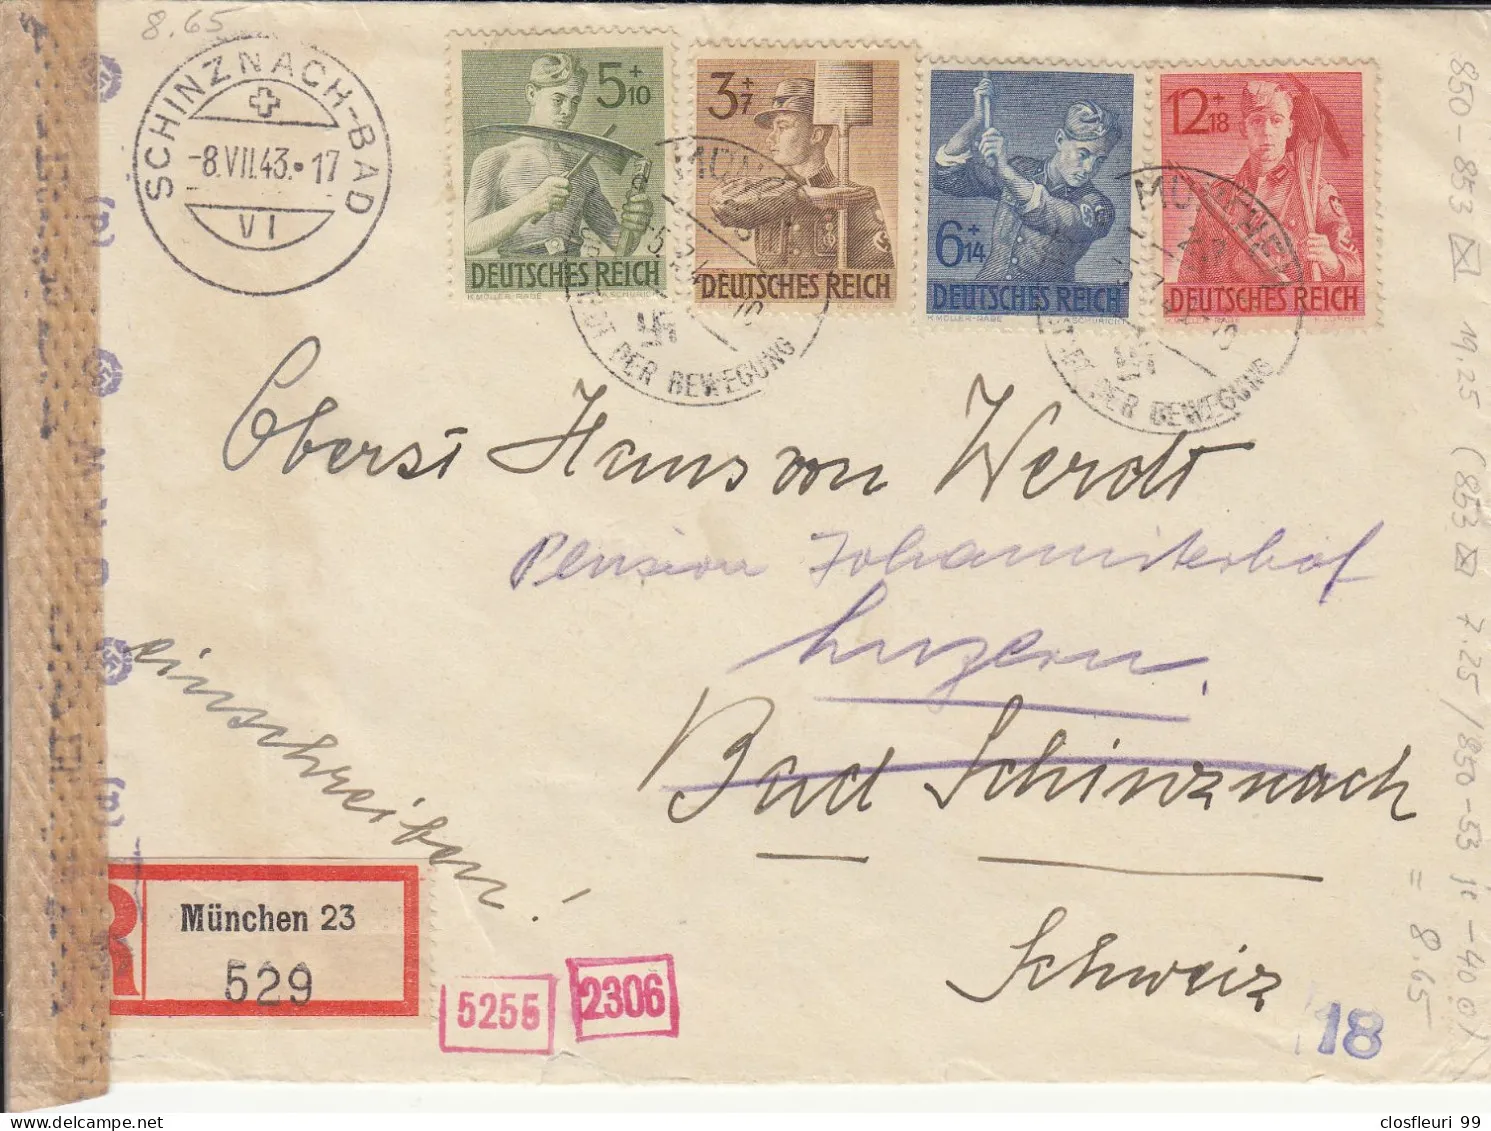 8.65
SCHINZNACH-BAD
-8.VII.43.•17
VI
5+10
DEUTSCHES REICH
3+7
DEUTSCHES REICH
6+14
DEUTSCHES REICH
12+18
DEUTSCHES REICH
DER BEWEGUNG
DER BEWEGUNG
Oberst Hans von Werdt
Pension Johanniterhof
Luzern.
Bad Schinznach
Schweiz
einschreiben!
R
München 23
529
5255
2306
18
850-853 ☒ 19.25 (853 ☒ 7.25 / 850-53 je -40 ⊙)
= 8.65
closfleuri 99